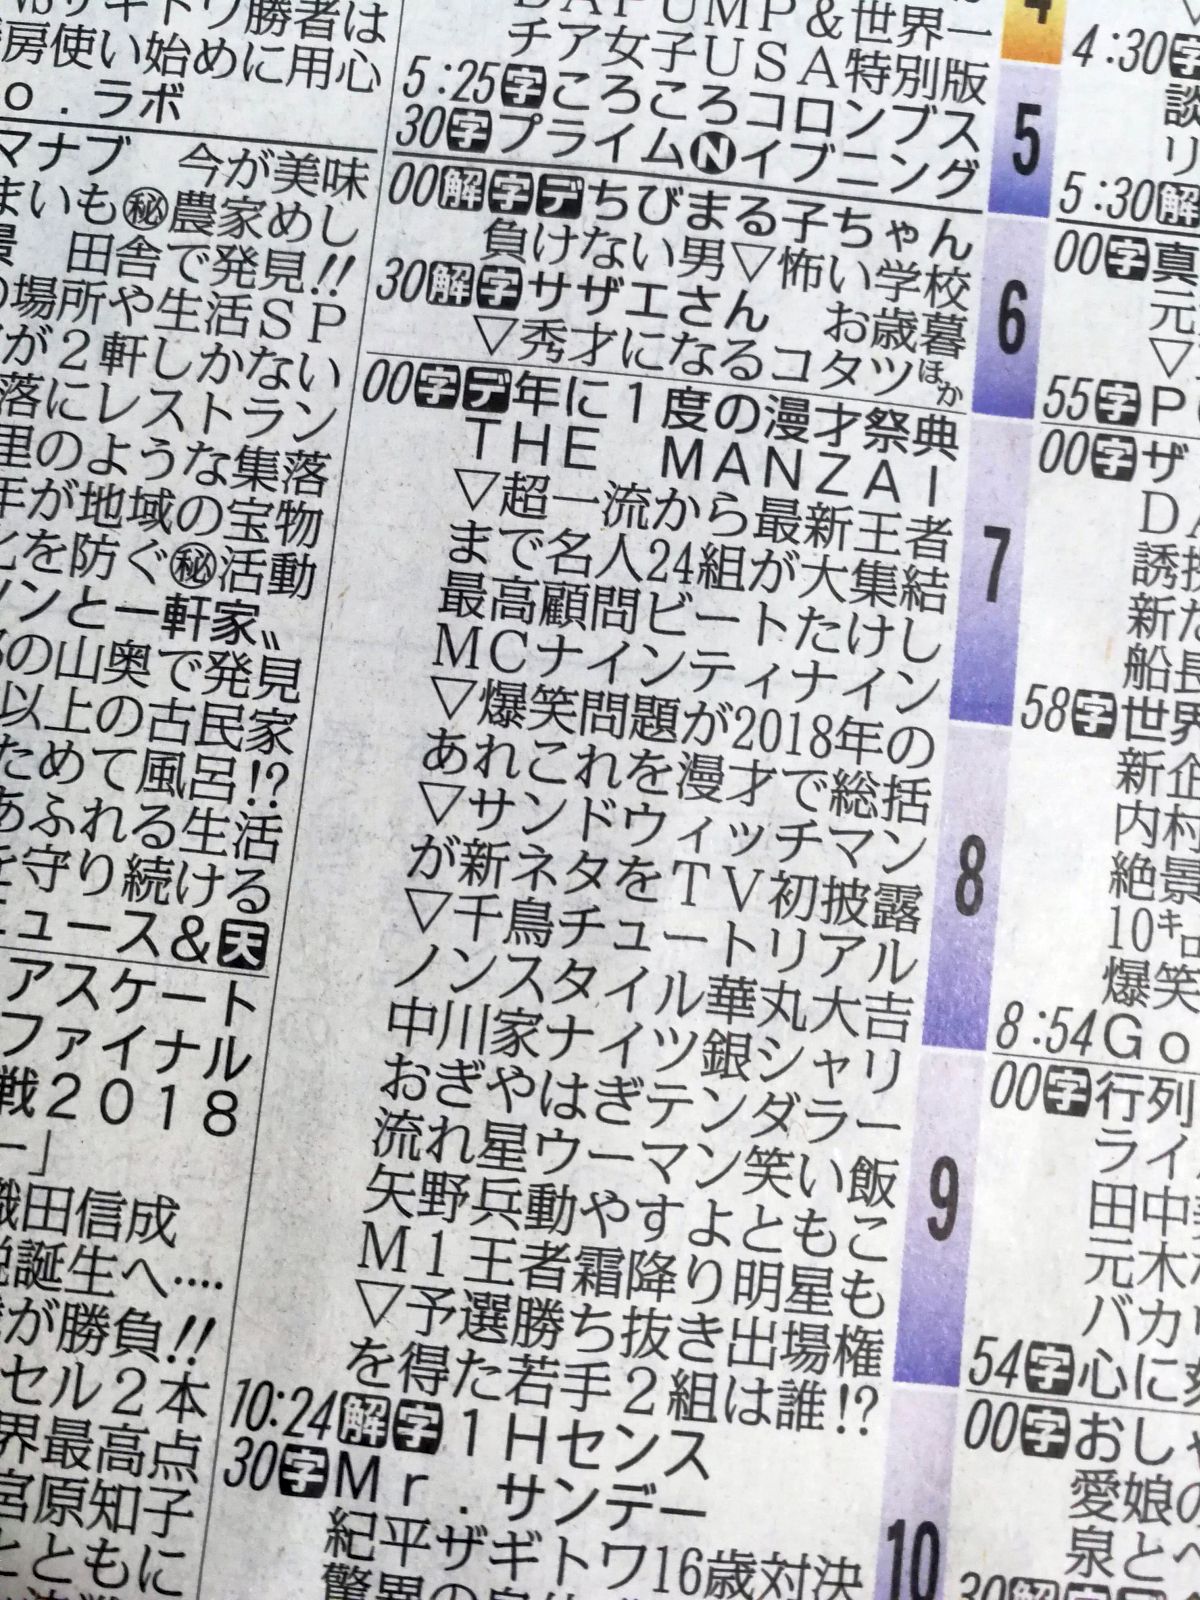 vsザギトワ勝者は
房使い始めに用心
o．ラボ
マナブ　今が美味
まいも㊙農家めし
景　田舎で発見!!
の場所や生活ＳＰ
が２軒しかない
落にレストラン
里のような集落
年が地域の宝物
化を防ぐ㊙活動
ソンと一軒家〟
の山奥で発見
以上の古民家
ためて風呂!?
あふれる生活
を守り続ける
ニュース&天
アスケート
ファイナル
戦２０１８
ー」
織田信成
誕生へ‥‥
が勝負!!
セル２本
界最高点
宮原知子
とともに
ＤＡＰＵＭＰ＆世界一
チア女子ＵＳＡ特別版
5:25字ころころコロンブス
30字プライムNイブニング
00解字デちびまる子ちゃん
負けない男▽怖い学校
30解字サザエさん　お歳暮
▽秀才になるコタツほか
00字デ年に１度の漫才祭典
ＴＨＥ　ＭＡＮＺＡＩ
▽超一流から最新王者
まで名人24組が大集結
最高顧問ビートたけし
ＭＣナインティナイン
▽爆笑問題が2018年の
あれこれを漫才で総括
▽サンドウィッチマン
が新ネタをＴＶ初披露
▽千鳥チュートリアル
ノンスタイル華丸大吉
中川家ナイツ銀シャリ
おぎやはぎテンダラー
流れ星ウーマン笑い飯
矢野兵動やすよともこ
Ｍ１王者霜降り明星も
▽予選勝ち抜き出場権
を得た若手２組は誰!?
10:24解字１Ｈセンス
30字Ｍｒ．サンデー
紀平ザギトワ16歳対決
4
5
6
7
8
9
10
4:30字
談
リ
5:30解
00字真
元
▽
55字Ｐ
00字ザ
ＤＡ
誘
新た
船長
58字世界
新企
内村
絶景
10㌔
爆笑
8:54Ｇｏ
00字行列
ライ
田中
元木
バカ
54字心に
00字おしゃ
愛娘の
泉と
30解字デ